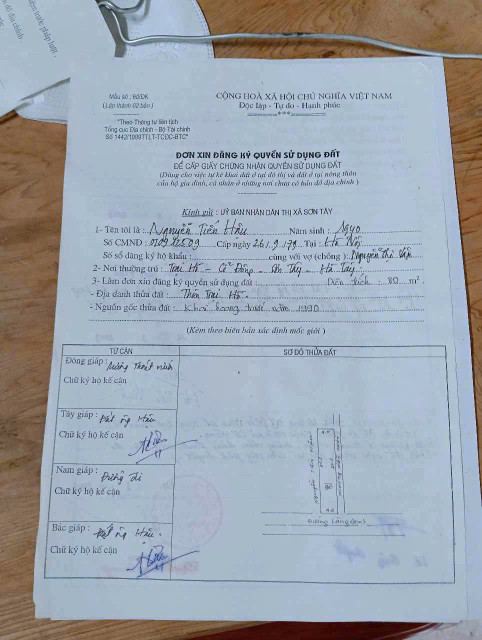 Mẫu số : 6đ/ĐK
(Lập thành 02 bản)
"Theo Thông tư liên tịch
Tổng cục Địa chính - Bộ Tài chính
Số 1442/1999/TTLT-TCĐC-BTC"
CỘNG HOÀ XÃ HỘI CHỦ NGHĨA VIỆT NAM
Độc lập - Tự do - Hạnh phúc
ĐƠN XIN ĐĂNG KÝ QUYỀN SỬ DỤNG ĐẤT
ĐỂ CẤP GIẤY CHỨNG NHẬN QUYỀN SỬ DỤNG ĐẤT
(Dùng cho việc tự kê khai đất ở tại đô thị và đất ở tại nông thôn
của hộ gia đình, cá nhân ở những nơi chưa có bản đồ địa chính)
Kính gửi : UỶ BAN NHÂN DÂN THỊ XÃ SƠN TÂY
1- Tên tôi là : Nguyễn Tiến Hậu Năm sinh :
Số CMND : Cấp ngày 26.9.179 Tại : Hà Nội
Số sổ đăng ký hộ khẩu : cùng với vợ (chồng) : Nguyễn Thị
2- Nơi thường trú : Trại Hồ - Cổ Đông - Sơn Tây - Hà Tây
3- Làm đơn xin đăng ký quyền sử dụng đất : Diện tích : 80 m².
- Địa danh thửa đất : Thôn Trại Hồ
- Nguồn gốc thửa đất : Khai hoang trước năm 1990
(Kèm theo biên bản xác định mốc giới)
TỨ CẬN
SƠ ĐỒ THỬA ĐẤT
Đông giáp : Mương Thoát nước
Chữ ký hộ kế cận
Tây giáp : Đất ông Hậu
Chữ ký hộ kế cận
Nam giáp : Đường đi
Chữ ký hộ kế cận
Bắc giáp : Đất ông Hậu
Chữ ký hộ kế cận
Đường Làng